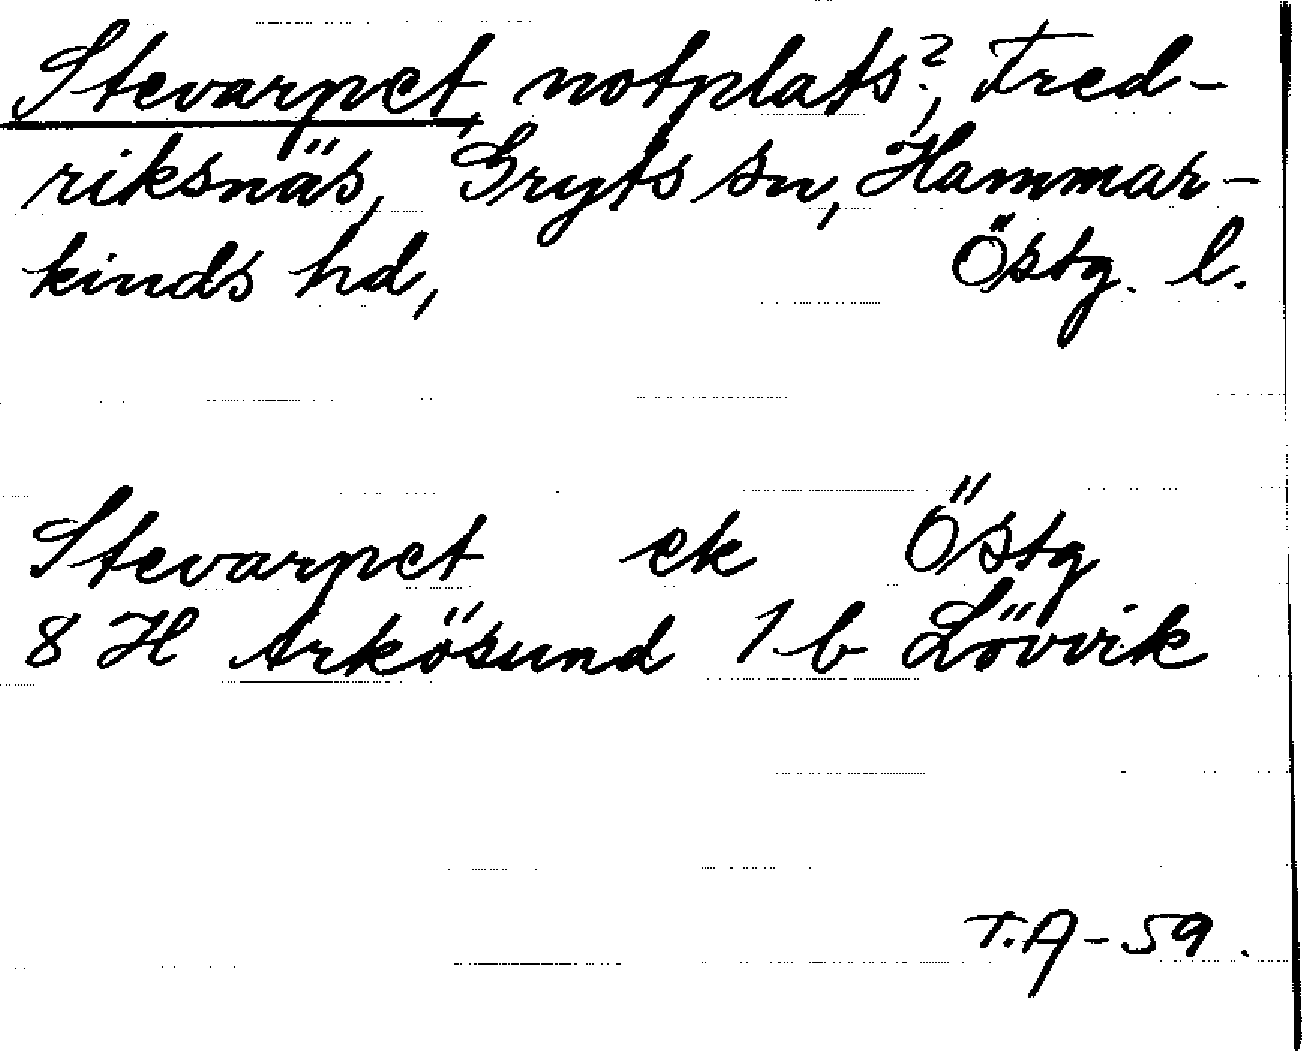 Stevarpet, notplats?, Fred-
riksnäs, Gryts sn, Hammar-
kinds hd, Östg. l.
Stevarpet ek Östg
8 H Arkösund 1 b Lövvik
T.A-59.